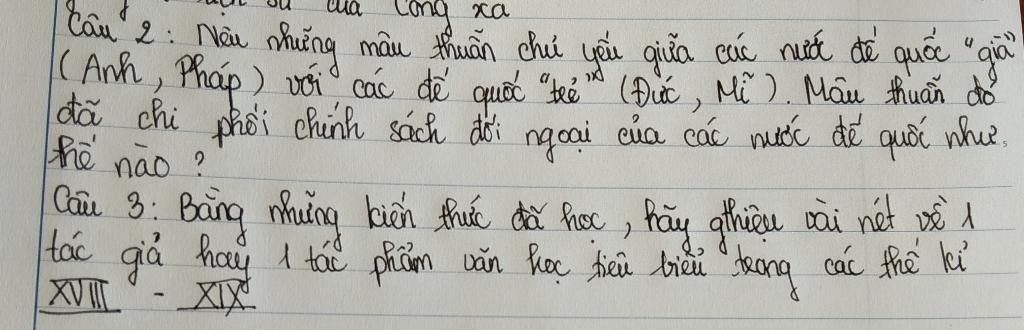 sử của Công xa
Câu 2: Nêu những mâu thuẫn chủ yếu giữa các nước đế quốc "già"
(Anh, Pháp) với các đế quốc "trẻ" (Đức, Mĩ). Mâu thuẫn đó
đã chi phối chính sách đối ngoại của các nước đế quốc như
thế nào?
Câu 3: Bằng những kiến thức đã học, hãy gthiệu vài nét về 1
tác giả hay 1 tác phẩm văn học tiêu biểu trong các thế kỉ
XVIII - XIX